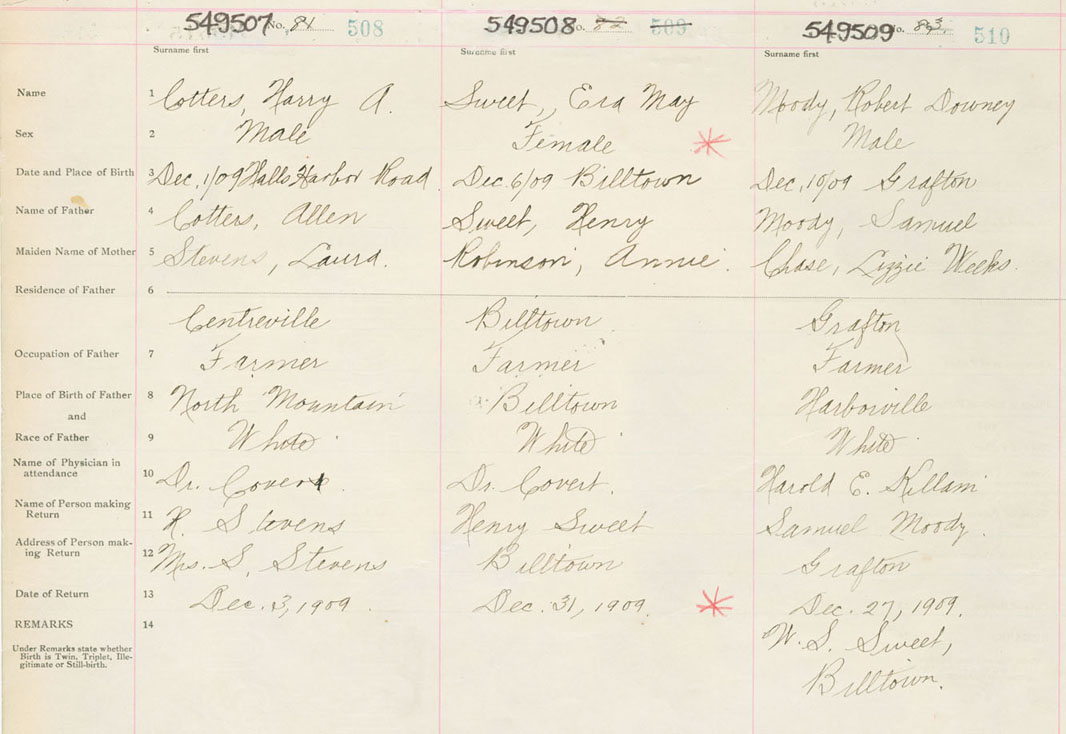 549507 No. 81 508
549508 No. 82 509
549509 No. 83 510
Surname first Surname first Surname first
Name 1 Cotters, Harry A. Sweet, Eva May Moody, Robert Downey
Sex 2 Male Female Male
Date and Place of Birth 3 Dec, 1/09 Halls Harbor Road Dec. 6/09 Billtown Dec, 10/09 Grafton
Name of Father 4 Cotters, Allen Sweet, Henry Moody, Samuel
Maiden Name of Mother 5 Stevens, Laura. Robinson, Annie. Chase, Lizzie Weeks.
Residence of Father 6
Centreville Billtown Grafton
Occupation of Father 7 Farmer Farmer Farmer
Place of Birth of Father 8 North Mountain Billtown Harborville
and
Race of Father 9 White White White
Name of Physician in
attendance 10 Dr. Covert. Dr. Covert. Harold E. Killam
Name of Person making
Return 11 H. Stevens Henry Sweet Samuel Moody.
Address of Person mak-
ing Return 12 Mrs. S, Stevens Billtown Grafton
Date of Return 13 Dec. 3, 1909. Dec. 31, 1909. Dec. 27, 1909.
REMARKS 14 W. S. Sweet,
Billtown.
Under Remarks state whether
Birth is Twin, Triplet, Ille-
gitimate or Still-birth.